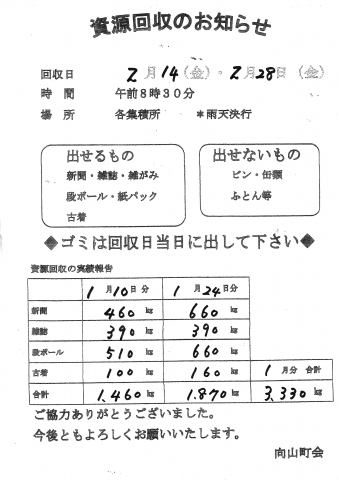 資源回収のお知らせ
回収日 2月14(金)・2月28日(金)
時間 午前8時30分
場所 各集積所 *雨天決行
出せるもの
新聞・雑誌・雑がみ
段ボール・紙パック
古着
出せないもの
ビン・缶類
ふとん等
◆ゴミは回収日当日に出して下さい◆
資源回収の実績報告
1月10日分 1月24日分
新聞 460kg 660kg
雑誌 390kg 390kg
段ボール 510kg 660kg
古着 100kg 160kg 1月分合計
合計 1,460kg 1,870kg 3,330kg
ご協力ありがとうございました。
今後ともよろしくお願いいたします。
向山町会